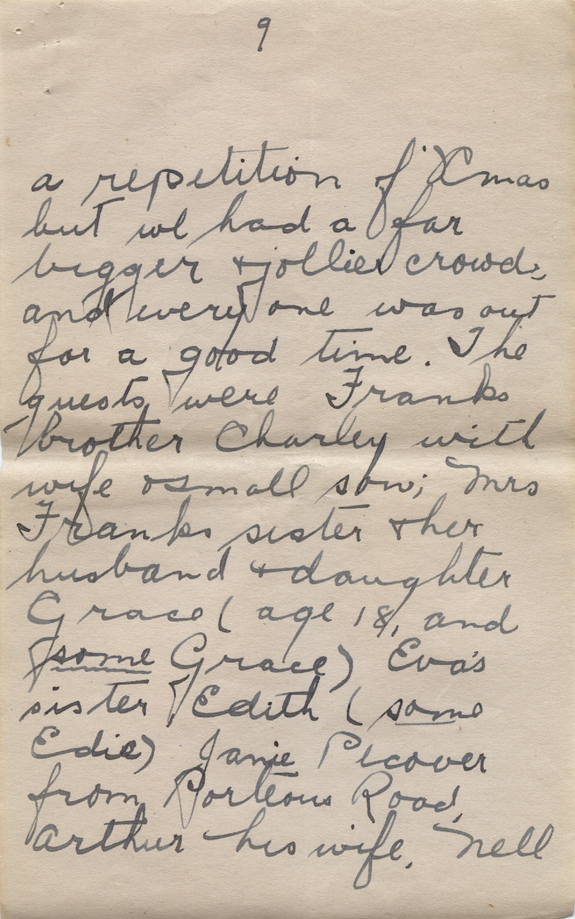 9
a repetition of Xmas
but we had a far
bigger & jollier crowd,
and every one was out
for a good time. The
guests were Franks
brother Charley with
wife & small son; Mrs
Franks sister & her
husband & daughter
Grace (age 18, and
some Grace) Eva's
sister Edith (some
Edie) Janie Plcover
from Porteous Road,
Arthur his wife, Nell